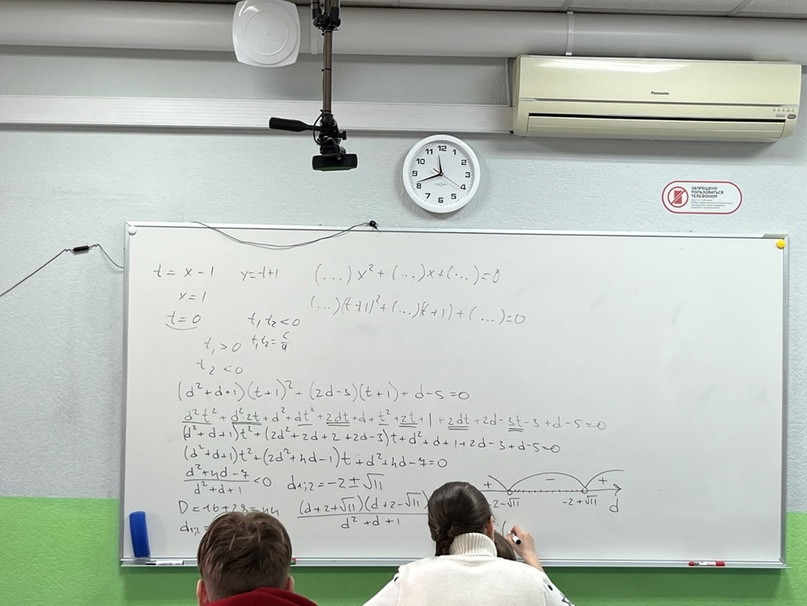 Panasonic
11 12 1
10 2
9 3
8 4
7 6 5
ЗАПРЕЩЕНО
ПОЛЬЗОВАТЬСЯ
ТЕЛЕФОНОМ
t = x - 1 y = t + 1 (...) x² + (...) x + (...) = 0
x = 1 (...)(t+1)² + (...)(t+1) + (...) = 0
t = 0 t₁ t₂ < 0
t₁ > 0 t₁ t₂ = c/a
t₂ < 0
(d² + d + 1)(t + 1)² + (2d - 3)(t + 1) + d - 5 = 0
d²t² + d²·2t + d² + dt² + 2dt + d + t² + 2t + 1 + 2dt + 2d - 3t - 3 + d - 5 = 0
(d² + d + 1)t² + (2d² + 2d + 2 + 2d - 3)t + d² + d + 1 + 2d - 3 + d - 5 = 0
(d² + d + 1)t² + (2d² + 4d - 1)t + d² + 4d - 7 = 0
(d² + 4d - 7)/(d² + d + 1) < 0 d₁,₂ = -2 ± √11
+ - +
-2 - √11 -2 + √11 d
D = 16 + 28 = 44 (d + 2 + √11)(d + 2 - √11)/(d² + d + 1)
d₁,₂ =